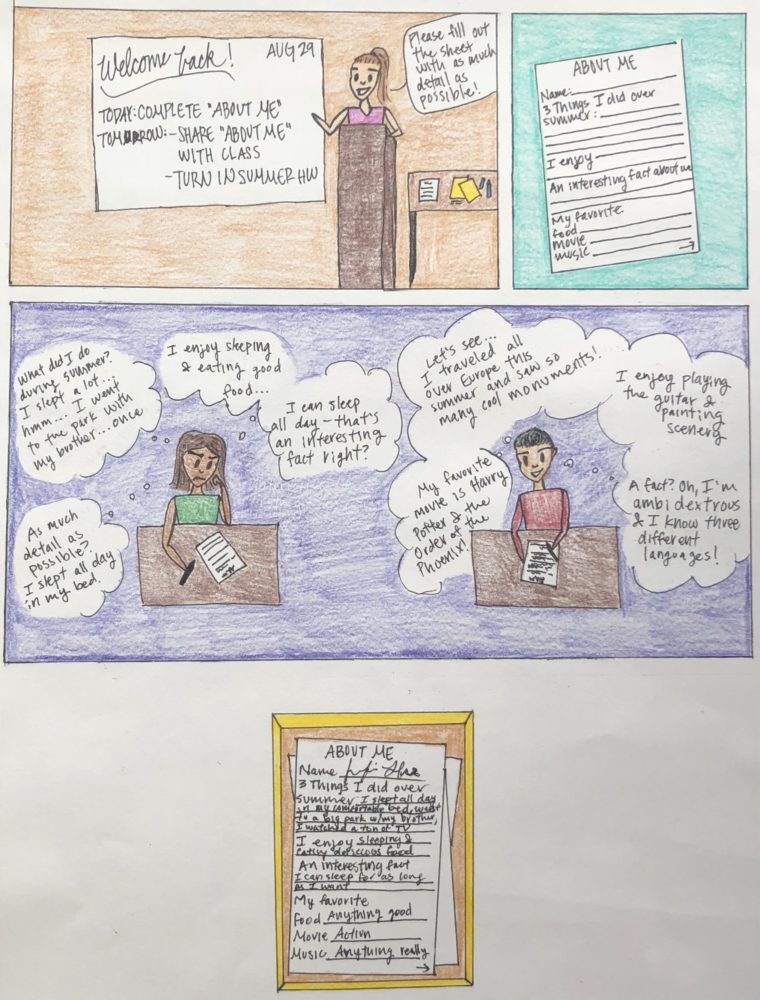 Welcome back!
AUG 29
TODAY: COMPLETE "ABOUT ME"
TOMORROW: - SHARE "ABOUT ME"
WITH CLASS
- TURN IN SUMMER HW
Please fill out
the sheet
with as much
detail as
possible!
ABOUT ME
Name:
3 Things I did over
summer:
I enjoy
An interesting fact about me
My favorite
food
movie
music
What did I do
during summer?
I slept a lot...
hmm... I went
to the park with
my brother... once
I enjoy sleeping
& eating good
food...
I can sleep
all day - that's
an interesting
fact right?
As much
detail as
possible?
I slept all day
in my bed.
Let's see...
I traveled all
over Europe this
summer and saw so
many cool monuments!
I enjoy playing
the guitar &
painting
scenery
My favorite
movie is Harry
Potter & the
Order of the
Phoenix!
A fact? Oh, I'm
ambidextrous
& I know three
different
languages!
ABOUT ME
Name
3 Things I did over
summer I slept all day
in my comfortable bed, went
to a big park w/my brother,
I watched a ton of TV
I enjoy sleeping &
eating delicious food
An interesting fact
I can sleep for as long
as I want
My favorite
Food Anything good
Movie Action
Music Anything really